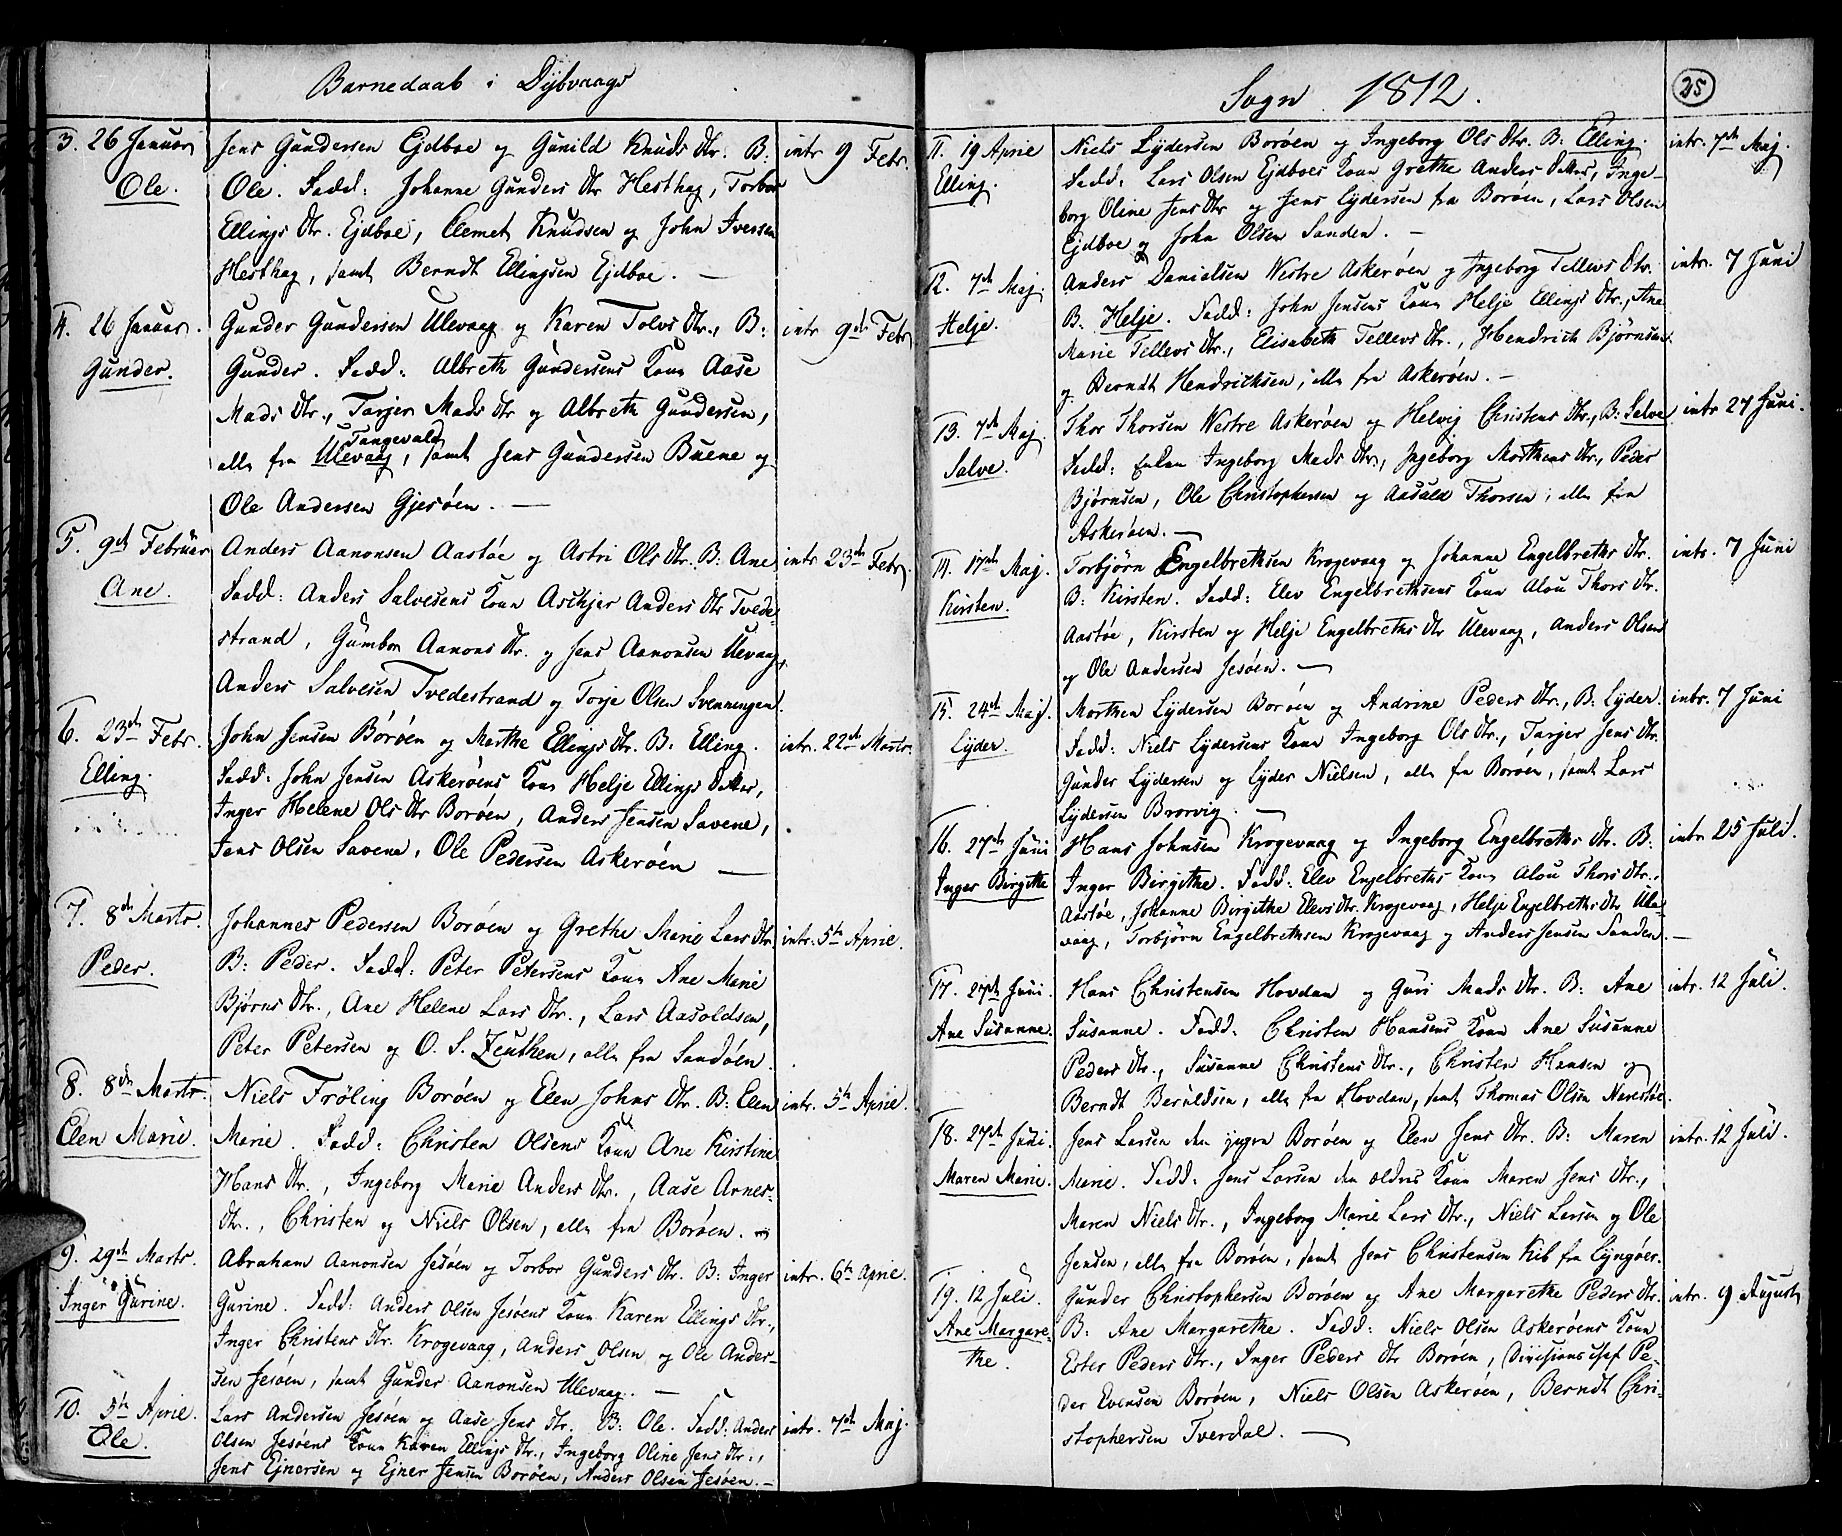 Barnedaab i Dybvaags
3. 26 Januar
Ole.
Jens Gundersen Ejdboe og Gunild Knuds Dtr. B:
Ole. Fadd: Johanne Gunders Dtr Hesthag, Torbor
Ellings Dtr. Ejdboe, Clemet Knudsen og John Iversen
Hesthag, samt Berndt Ellingsen Ejdboe. —
intr 9 Febr.
4. 26 Januar.
Gunder.
Gunder Gundersen Ulevaag og Karen Tolvs Dtr., B:
Gunder. Fadd: Albreth Gundersens Kone Aase
Mads Dtr., Tarjer Mads Dtr og Albreth Gundersen,
Tangevald
alle fra Ulevaag, samt Jens Gundersen Buene og
Ole Andersen Gjesøen. —
intr 9de Febr
5. 9de Februar
Ane.
Anders Aanonsen Aastøe og Astri Ols Dtr. B: Ane
Fadd: Anders Salvesens Kone Aschjer Anders Dtr Tvede-
strand, Gumbor Aanons Dtr. og Jens Aanonsen Ulevaag,
Anders Salvesen Tvedestrand og Torje Olsen Svenningen.
intr 23de Febr.
6. 23de Febr.
Elling.
John Jensen Borøen og Marthe Ellings Dtr. B: Elling.
Fadd: John Jensen Askerøens Kone Helje Ellings Datter,
Inger Helene Ols Dtr Borøen, Anders Jensen Savene,
Jens Olsen Savene, Ole Pedersen Askerøen —
intr. 22de Marts.
7. 8de Marts.
Peder.
Johannes Pedersen Borøen og Grethe Marie Lars Dtr.
B: Peder. Fadd: Peter Petersens Kone Ane Marie
Bjørns Dtr., Ane Helene Lars Dtr., Lars Aasoldsen,
Peter Petersen og O. S. Zeuthen, alle fra Sandøen.
intr. 5te April.
8. 8de Marts.
Elen Marie.
Niels Frøling Borøen og Elen Johns Dtr. B: Elen
Marie. Fadd: Christen Olsens Kone Ane Kirstine
Hans Dtr., Ingeborg Marie Anders Dtr., Aase Arnes-
Dtr., Christen og Niels Olsen, alle fra Borøen.
intr. 5te April.
9. 29de Marts.
Inger Gurine.
Abraham Aanonsen Jesøen og Torbor Gunders Dtr. B: Inger
Gurine. Fadd: Anders Olsen Jesøens Kone Karen Ellings Dtr.,
Inger Christens Dtr. Krogevaag, Anders Olsen og Ole Ander-
sen Jesøen, samt Gunder Aanonsen Ulevaag. —
intr. 6te April.
10. 5te April.
Ole.
Lars Andersen Jesøen og Aase Jens Dtr. B: Ole. Fadd: Anders
Olsen Jesøens Kone Karen Ellings Dtr., Ingeborg Oline Jens Dtr.,
Jens Ejnersen og Ejner Jensen Borøen, Anders Olsen Jesøen. —
intr. 7de Maj.
Sogn 1812.
25
11. 19 April
Elling.
Niels Lydersen Borøen og Ingeborg Ols Dtr. B: Elling.
Fadd: Lars Olsen Ejdboes Kone Grethe Anders Datter, Inge-
borg Oline Jens Dtr og Jens Lydersen fra Borøen, Lars Olsen
Ejdboe og John Olsen Sanden. —
intr. 7de Maj.
12. 7de Maj.
Helje.
Anders Danielsen Westre Askerøen og Ingeborg Tellevs Dtr.
B. Helje. Fadd: John Jensens Kone Helje Ellings Dtr., Ane
Marie Tellevs Dtr., Elisabeth Tellevs Dtr., Hendrich Bjørnsen
og Berndt Hendrichsen, alle fra Askerøen. —
intr. 7 Juni
13. 7de Maj.
Salve.
Thor Thorsen Westre Askerøen og Helvig Christens Dtr., B: Salve.
Fadd: Enken Ingeborg Mads Dtr., Ingeborg Morthens Dtr., Peder
Bjørnsen, Ole Christophersen og Aasold Thorsen; alle fra
Askerøen. —
intr 27 Juni.
14. 17de Maj.
Kirsten.
Torbjørn Engelbrethsen Krogevaag og Johanne Engelbreths Dtr.
B: Kirsten. Fadd: Elev Engelbrethsens Kone Alou Thors Dtr.
Aastøe, Kirsten og Helje Engelbreths Dtr Ulevaag, Anders Olsen
og Ole Andersen Jesøen. —
intr. 7 Juni
15. 24de Maj.
Lyder.
Morthen Lydersen Borøen og Andrine Peders Dtr., B: Lyder.
Fadd: Niels Lydersens Kone Ingeborg Ols Dtr., Tarjer Jens Dtr.
Gunder Lydersen og Lyder Nielsen, alle fra Borøen, samt Lars
Lydersen Brorvig. —
intr. 7 Juni
16. 27de Juni
Inger Birgithe
Hans Johnsen Krogevaag og Ingeborg Engelbreths Dtr. B:
Inger Birgithe. Fadd: Elev Engelbreths Kone Alou Thors Dtr.
Aastøe, Johanne Birgithe Elevs Dtr. Krogevaag, Helje Engelbreths Dtr Ule-
vaag, Torbjørn Engelbrethsen Krogevaag og Anders Jensen Sanden. —
intr 25 Juli.
17. 27de Juni.
Ane Susanne.
Hans Christensen Hovdan og Guri Mads Dtr. B: Ane
Susanne. Fadd: Christen Hansens Kone Ane Susanne
Peders Dtr., Susanne Christens Dtr., Christen Hansen og
Berndt Beruldsen, alle fra Hovdan, samt Thomas Olsen Narestøe
intr. 12 Juli.
18. 27de Juni.
Maren Marie.
Jens Larsen den yngre Borøen og Elen Jens Dtr. B: Maren
Marie. Fadd: Jens Larsen den ældres Kone Maren Jens Dtr.,
Maren Niels Dtr., Ingeborg Marie Lars Dtr., Niels Larsen og Ole
Jensen, alle fra Borøen, samt Jens Christensen Kib fra Lyngøer.
intr. 12 Juli.
19. 12 Juli.
Ane Margare-
the.
Gunder Christophersen Borøen og Ane Margarethe Peders Dtr.
B: Ane Margarethe. Fadd: Niels Olsen Askerøens Kone
Ester Peders Dtr., Inger Peders Dtr Borøen, Divisionschef Pe-
der Evensen Borøen, Niels Olsen Askerøen, Berndt Chri-
stophersen Tverdal. —
intr. 9 August